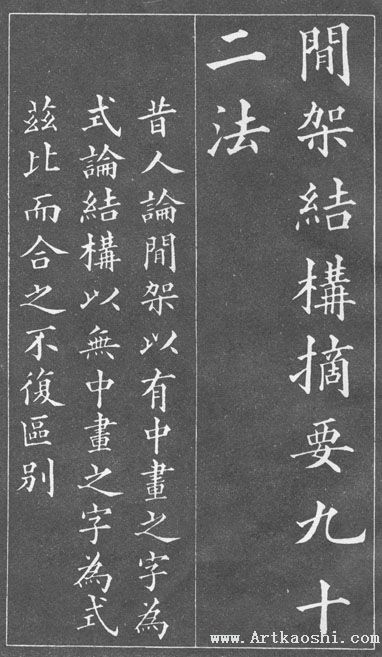 閒架結構摘要九十
二法
昔人論閒架以有中畫之字為
式論結構以無中畫之字為式
茲比而合之不復區别
www.Artkaoshi.com